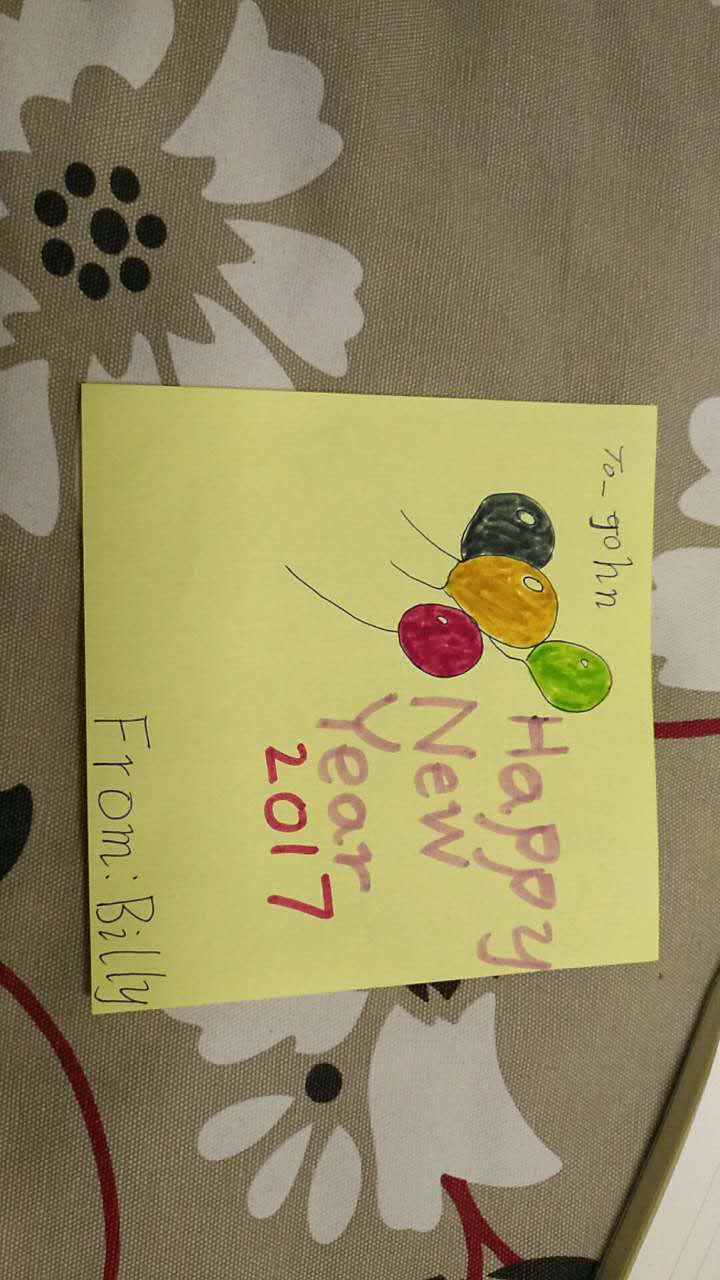 To- gohn
Happy
New
Year
2017
From: Billy